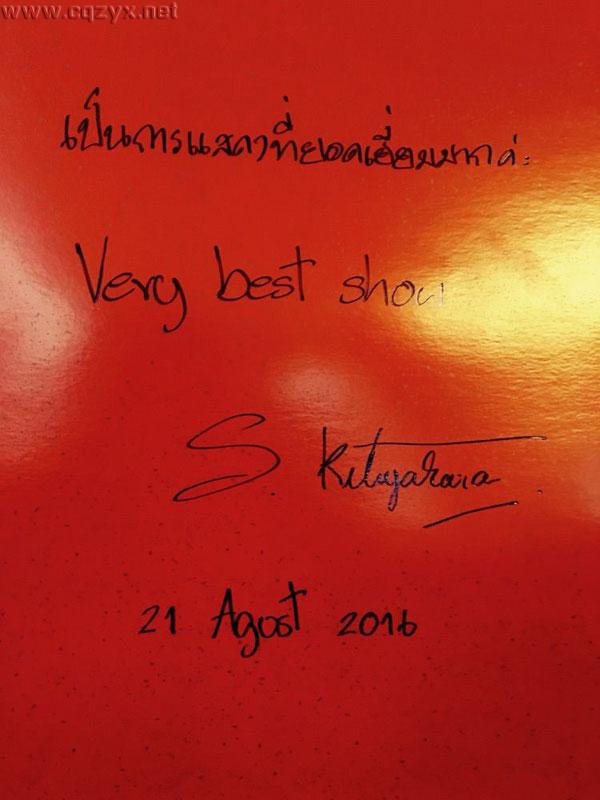 www.cqzyx.net
เป็นการแสดงที่ยอดเยี่ยมมากค่ะ
Very best show
S. Kitayarara
21 Agost 2016